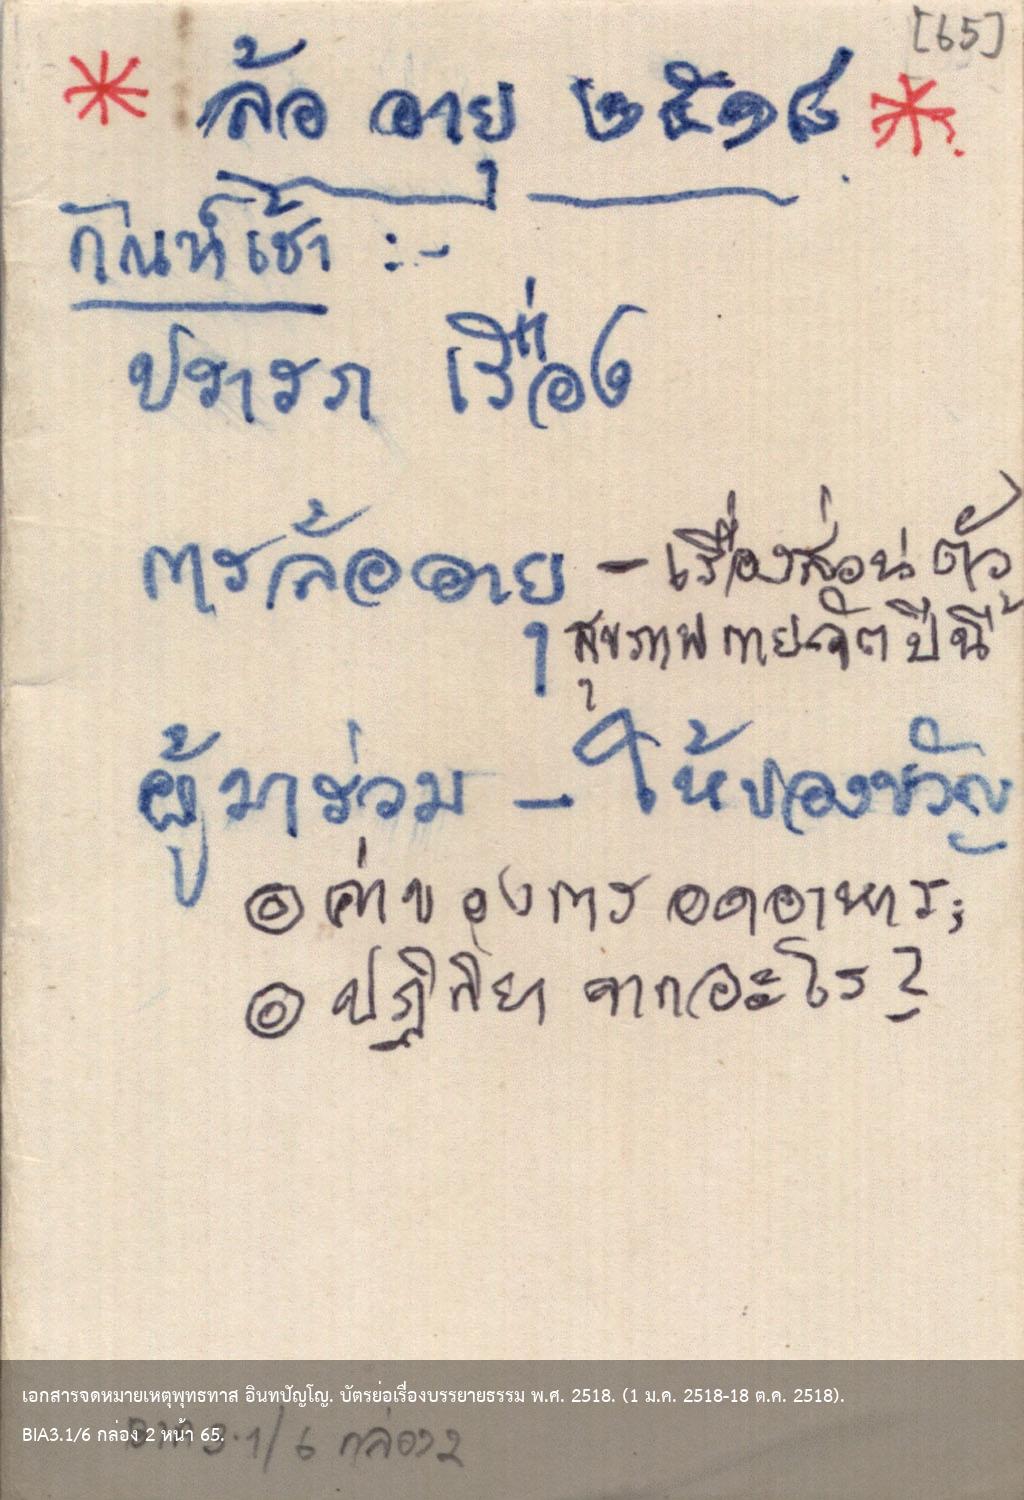 [65]
* ล้อ อายุ ๒๕๑๘ *
กัณฑ์เช้า :-
ปรารภ เรื่อง
การล้ออายุ - เรื่องส่วนตัว
สุขภาพ กายจิต ปีนี้
ผู้มาร่วม - ให้ของขวัญ
ค่าของการ อดอาหาร;
ปฏิกิยา จากอะไร?
เอกสารจดหมายเหตุพุทธทาส อินทปัญโญ. บัตรย่อเรื่องบรรยายธรรม พ.ศ. 2518. (1 ม.ค. 2518-18 ต.ค. 2518).
BIA3.1/6 กล่อง 2 หน้า 65.
BIA 3.1/6 กล่อง 2